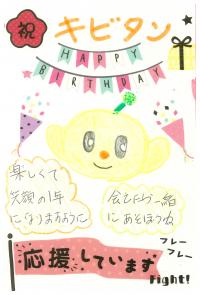 祝
キビタン
HAPPY
BIRTHDAY
楽しくて
笑顔の1年
になりますように
会えたら一緒
にあそぼうね
フレー
フレー
応援しています
Fight!